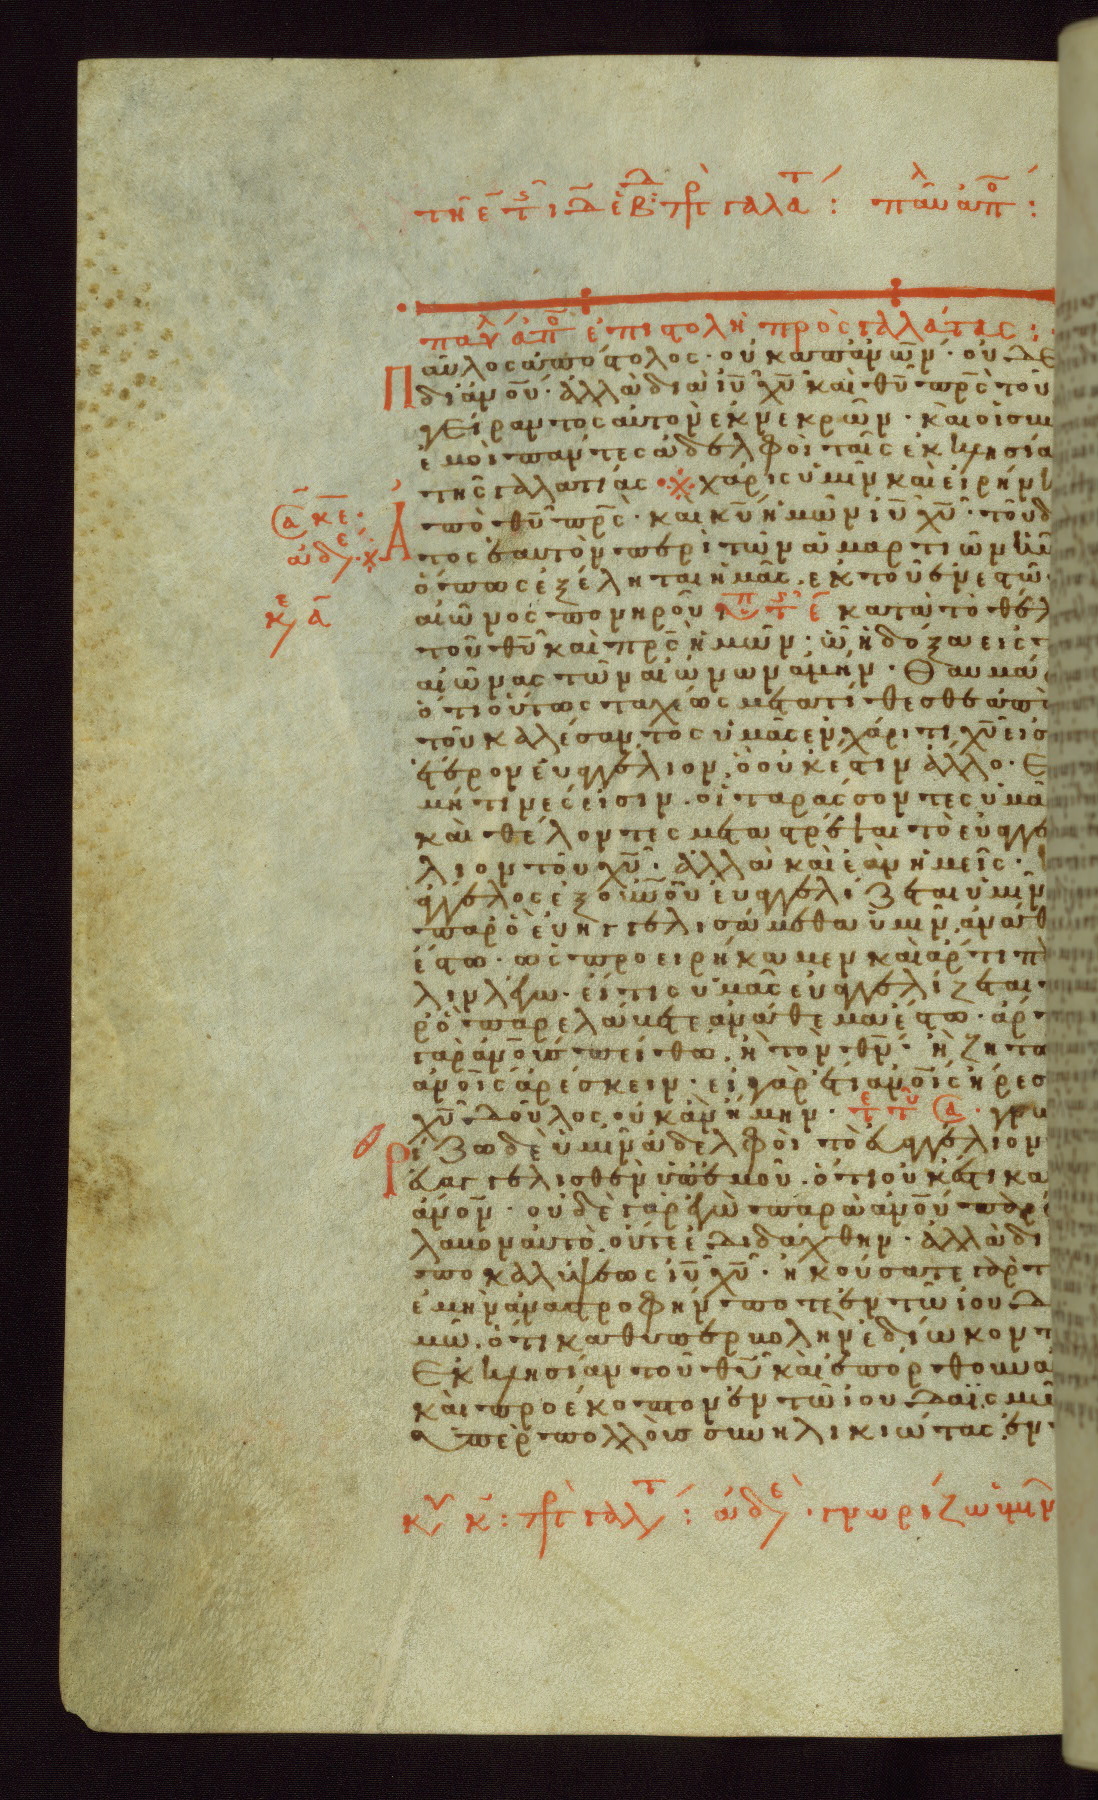 παύλου ἀπο ἐπιστολὴ πρὸς γαλάτας:
Παῦλος ἀπόστολος· οὐκ ἀπ ἀνῶν· οὐδὲ
δι ἀνοῦ· ἀλλὰ διὰ ιυ χυ καὶ θυ πρς τοῦ
γείραντος αὐτὸν ἐκ νεκρῶν· καὶ οἱ συ
ἐμοὶ πάντες ἀδελφοὶ ταῖς ἐκκλησία
τῆς γαλατίας· χάρις ὑμῖν καὶ εἰρήνη
ἀπὸ θυ πρς· καὶ κυ ἡμῶν ιυ χυ· τοῦ δ
τος ἑαυτὸν περὶ τῶν ἁμαρτιῶν ἡμ
ὅπως ἐξέληται ἡμᾶς, ἐκ τοῦ ἐνεστῶ
αἰῶνος πονηροῦ κατὰ τὸ θέλ
τοῦ θυ καὶ πρς ἡμῶν· ὧ ἡ δόξα εἰς τ
αἰῶνας τῶν αἰώνων ἀμήν· Θαυμά
ὅτι οὕτως ταχέως μετατίθεσθε ἀπὸ
τοῦ καλέσαντος ὑμᾶς ἐν χάριτι χυ εἰς
ἕτερον εὐαγγέλιον, ὃ οὐκ ἔστιν ἄλλο· Ε
μή τινές εἰσιν· οἱ ταράσσοντες ὑμᾶ
καὶ θέλοντες μεταστρέψαι τὸ εὐαγγέ
λιον τοῦ χυ· ἀλλὰ καὶ ἐὰν ἡμεῖς·
ἄγγελος ἐξ οὐνοῦ εὐαγγελίζεται ὑμῖν
παρ ὃ εὐηγγελισάμεθα ὑμῖν, ἀνάθ
ἔστω· ὡς προειρήκαμεν καὶ ἄρτι πά
λιν λέγω· εἴ τις ὑμᾶς εὐαγγελίζεται
ρ ὃ παρελάβετε ἀνάθεμα ἔστω· ἄρ
γὰρ ἀνους πείθω, ἢ τὸν θν· ἢ ζητῶ
ἀνοις ἀρέσκειν· εἰ γὰρ ἔτι ἀνοις ἤρεσ
χυ δοῦλος οὐκ ἂν ἤμην· γνω
ρίζω δὲ ὑμῖν ἀδελφοὶ τὸ εὐαγγέλιον
εὐαγγελισθὲν ὑπ ἐμοῦ· ὅτι οὐκ ἔστι κα
ἀνον· οὐδὲ γὰρ ἐγὼ παρὰ ἀνου παρέ
λαβον αὐτὸ, οὔτε ἐδιδάχθην· ἀλλὰ δι
ἀποκαλύψεως ιυ χυ· ἠκούσατε γὰρ τ
ἐμὴν ἀναστροφήν ποτε ἐν τῶ ἰουδα
μῶ· ὅτι καθ ὑπερβολὴν ἐδίωκον τ
Ἐκκλησίαν τοῦ θυ καὶ ἐπόρθουν α
καὶ προέκοπτον ἐν τῶ ἰουδαϊσμῶ
ὑπὲρ πολλοὺς συνηλικιώτας ἐν
γνωρίζω ὑμῖν